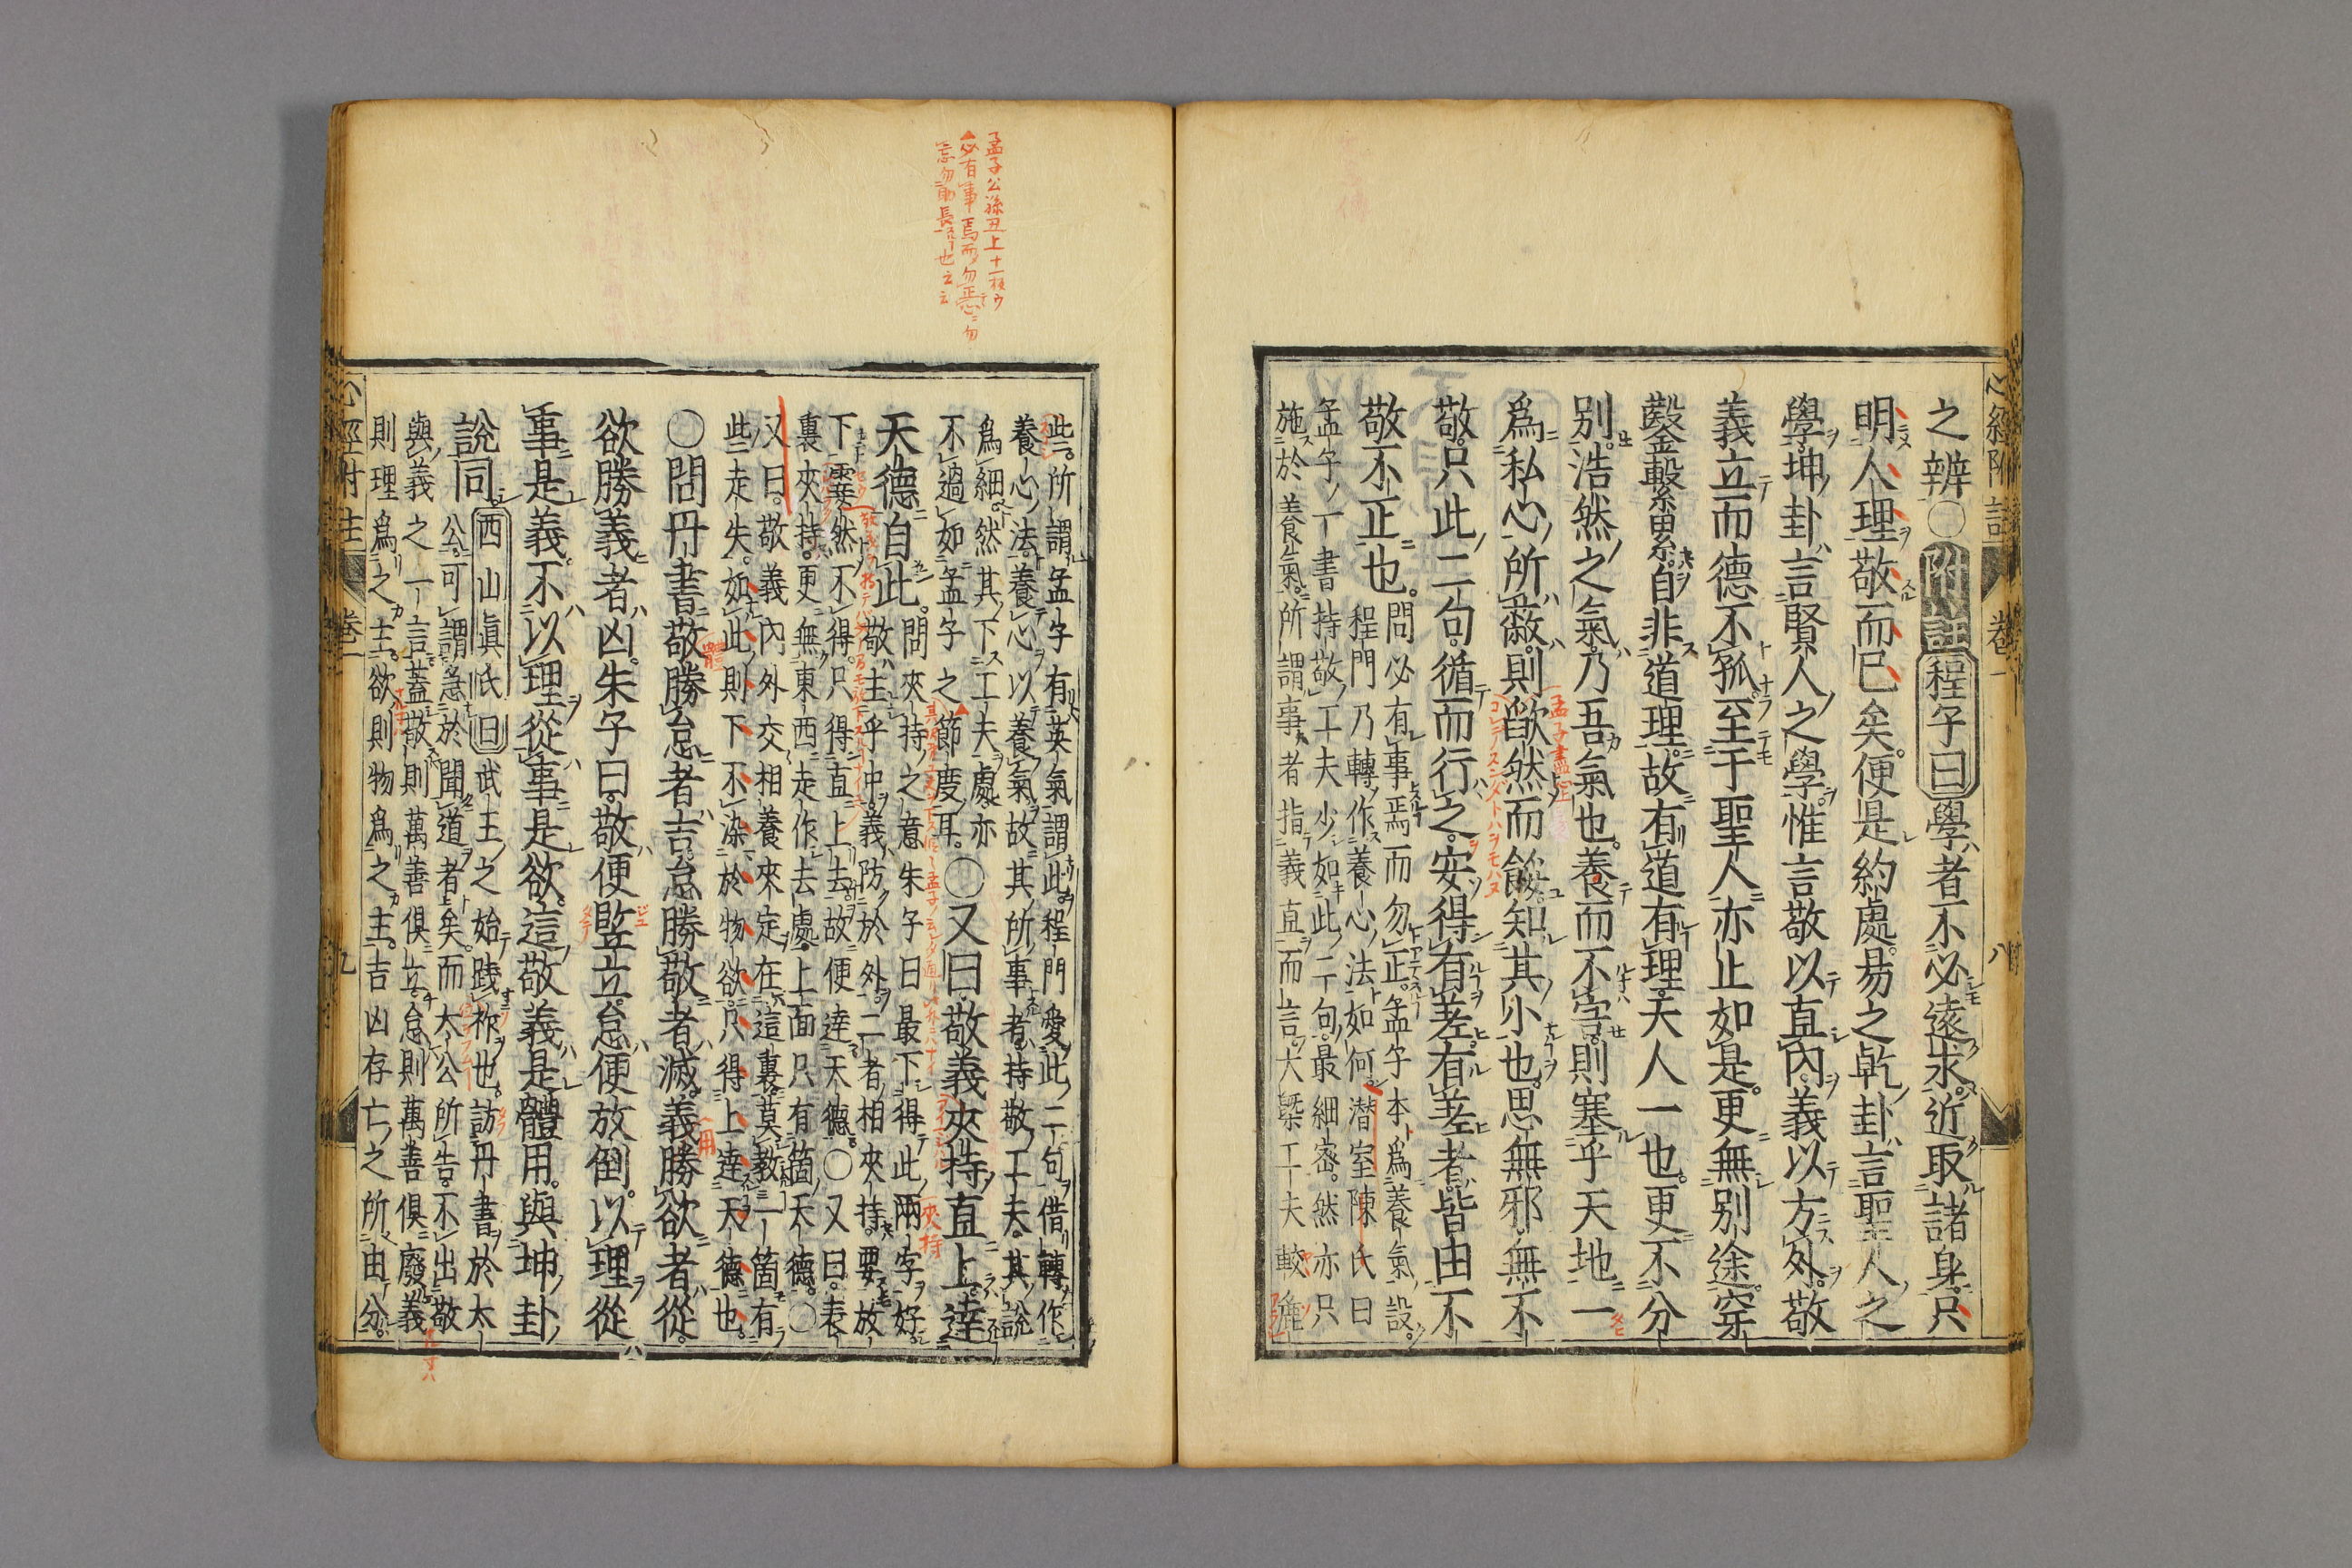 心經附註 卷一 八
之辨〇附註程子曰學者不必遠求近取諸身只
明人理敬而已矣便是約處易之乾卦言聖人之
學坤卦言賢人之學惟言敬以直內義以方外敬
義立而德不孤至于聖人亦止如是更無別途穿
鑿繫累自非道理故有道有理天人一也更不分
別浩然之氣乃吾氣也養而不害則塞乎天地一
爲私心所蔽則欿然而餒知其小也思無邪無不
敬只此二句循而行之安得有差有差者皆由不
敬不正也
問必有事焉而勿正孟子本爲養氣設
程門乃轉作養心法如何潛室陳氏曰
孟子丁書持敬工夫少如此二句最細密然亦只
施於養氣所謂事者指義直而言大槩工夫較麄
孟子盡上
孟子公孫丑上十一板ウ
必有事焉而勿正心勿
忘勿助長也云云
此所謂孟子有英氣謂此程門愛此二句借轉作
養心法養心以養氣故其所事者持敬工夫其說
爲細然其下工夫處亦
不過如孟子之節度耳
〇又曰敬義夾持直上達
天德自此
問夾持之意朱子曰最下得此兩字好
敬主乎中義防於外二者相夾持要放
下霎然不得只得直上去故便達天德〇又曰表
裏夾持更無東西走作去處上面只有箇天德〇
又曰敬義內外交相養來定在這裏莫敎一箇有
些走失如此則下不染於物欲只得上達天德也
〇問丹書敬勝怠者吉怠勝敬者滅義勝欲者從
欲勝義者凶朱子曰敬便竪立怠便放倒以理從
事是義不以理從事是欲這敬義是體用與坤卦
說同
西山眞氏曰武王之始踐祚也訪丹書於太
公可謂急於聞道者矣而太公所告不出敬
與義之一言蓋敬則萬善俱立怠則萬善俱廢義
則理爲之主欲則物爲之主吉凶存亡之所由分
夾持
體
用
心經附註 卷一 九